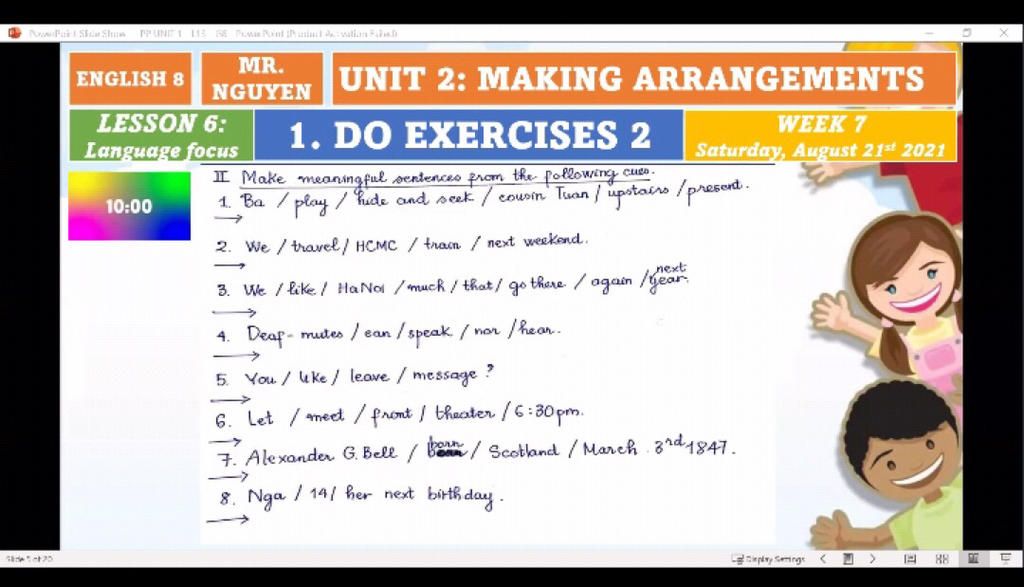 PowerPoint Slide Show - PP UNIT 1 - L13 - G8 - PowerPoint (Product Activation Failed)
ENGLISH 8
MR. NGUYEN
UNIT 2: MAKING ARRANGEMENTS
LESSON 6:
Language focus
1. DO EXERCISES 2
WEEK 7
Saturday, August 21st 2021
10:00
II Make meaningful sentences from the following cues.
1. Ba / play / hide and seek / cousin Tuan / upstairs / present.
2. We / travel / HCMC / train / next weekend.
3. We / like / HaNoi / much / that / go there / again / next year.
4. Deaf-mutes / can / speak / nor / hear.
5. You / like / leave / message ?
6. Let / meet / front / theater / 6:30pm.
7. Alexander G. Bell / born / Scotland / March 3rd 1847.
8. Nga / 14 / her next birthday.
Slide 5 of 20
Display Settings